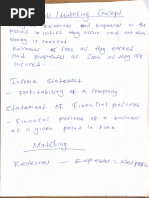 / Matching Concept
Expenses in the
period in which they occur and not when
money is
Revenues as soon as they earned
and expenses as soon as they are
incurred.
Income Statement
- Profitability of a company
Statement of Financial position
- Financial position of a business
at a given point in time
Matching
Revenues - Expenses =